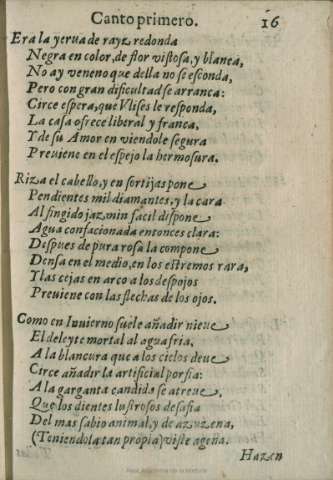 Canto primero. 16
Era la yerua de rayz redonda
Negra en color, de flor vistosa, y blanca,
No ay veneno que della no se esconda,
Pero con gran dificultad se arranca:
Circe espera, que Vlises le responda,
La casa ofrece liberal y franca,
Y de su Amor en viendole segura
Preuiene en el espejo la hermosura.
Riza el cabello, y en sortijas pone
Pendientes mil diamantes, y la cara
Al fingido jazmin facil dispone
Agua confacionada entonces clara:
Despues de pura rosa la compone
Densa en el medio, en los estremos rara,
Y las cejas en arco a los despojos
Preuiene con las flechas de los ojos.
Como en Inuierno suele añadir nieue
El deleyte mortal al agua fria,
A la blancura que a los cielos deue
Circe añadir la artificial porfia:
A la garganta candida se atreue,
Que los dientes lustrosos desafia
Del mas sabio animal, y de azuzena,
(Teniendola tan propia) viste agena.
Hazen